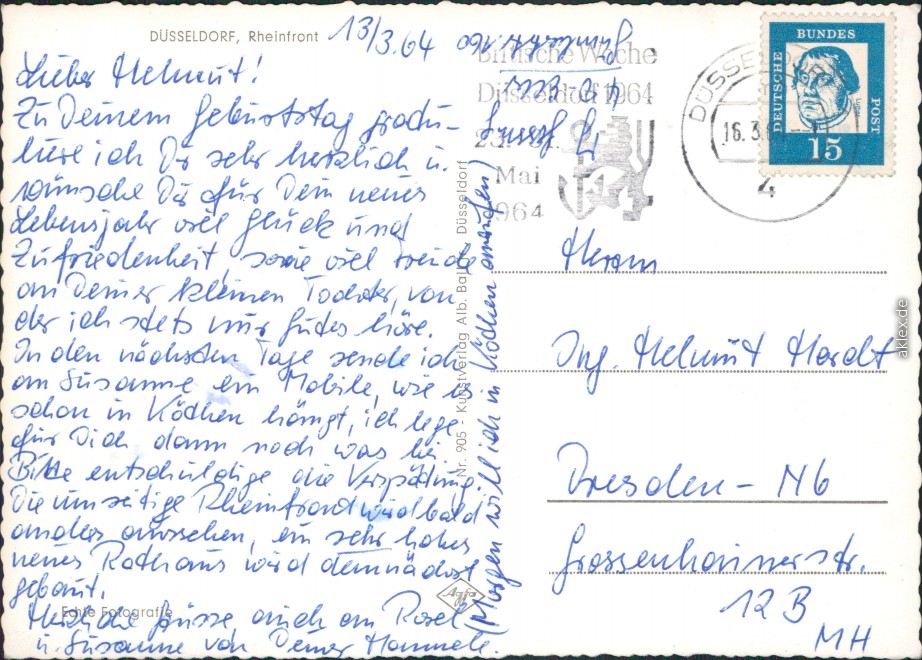 DÜSSELDORF, Rheinfront
13/3.64
Lieber Helmut!
Zu Deinem Geburtstag gratu-
liere ich Dir sehr herzlich u.
wünsche Dir für Dein neues
Lebensjahr viel Glück und
Zufriedenheit, sowie viel Freude
an Deiner kleinen Tochter, von
der ich stets nur Gutes höre.
In den nächsten Tage sende ich
an Susanne ein Mobile, wie es
schon in Köthen hängt, ich lege
für Dich dann noch was bei.
Bitte entschuldige die Verspätung.
Die umseitige Rheinfront wird bald
anders aussehen, ein sehr hohes
neues Rathaus wird demnächst
gebaut.
Herzliche Grüsse auch an Rosel
u. Susanne von Deiner Hannele.
(Morgen will ich in Köthen anrufen)
Echte Fotografie
Nr. 905 - Kunstverlag Alb. Düsseldorf
Agfa
Britische Woche
Düsseldorf 1964
Mai
1964
DÜSSELDORF
16.3.
4
DEUTSCHE
BUNDES
POST
15
Herrn
Ing. Helmut Hardt
Dresden - N6
Grossenhainerstr.
12 B
MH
aklex.de